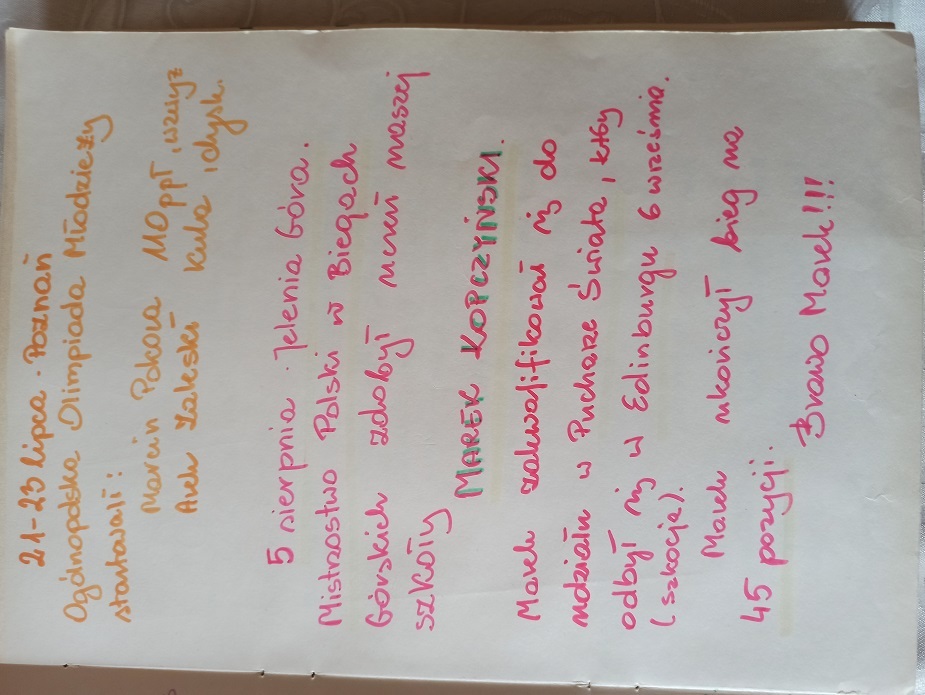 21-23 lipca. Poznań
Ogólnopolska Olimpiada Młodzieży
startowali:
Marcin Pokora 110 ppł, wzwyż
Arek Zaleski kula, dysk.
5 sierpnia. Jelenia Góra.
Mistrzostwo Polski w Biegach
Górskich zdobył uczeń naszej
szkoły
MAREK KOPCZYŃSKI.
Marek zakwalifikował się do
udziału w Pucharze Świata, który
odbył się w Edinburgu 6 września.
(szkocja).
Marek ukończył bieg na
45 pozycji.
Brawo Marek!!!